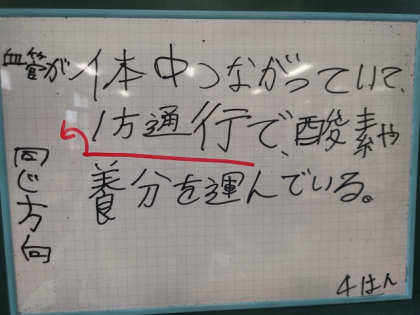 血管が体中つながっていて、
1方通行で、酸素や
養分を運んでいる。
同じ方向
4はん